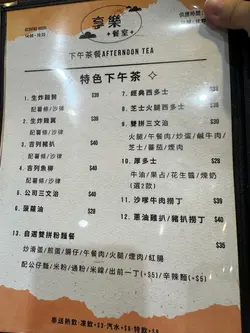 享樂
餐室
下午茶餐AFTERNOON TEA
特色下午茶
1. 生炸雞髀 $39
配薯條/沙律
2. 生炸雞翼 $39
配薯條/沙律
3. 吉列豬扒 $40
配薯條/沙律
4. 吉列魚柳 $38
配薯條/沙律
5. 公司三文治 $40
配薯條/沙律
6. 菠蘿油 $20
7. 經典西多士 $35
8. 芝士火腿西多士 $40
9. 雙拼三文治 $35
火腿/午餐肉/炒蛋/鹹牛肉/
芝士/蕃茄/煙肉
10. 厚多士 $28
牛油/果占/花生醬/煉奶
(選2款)
11. 沙嗲牛肉撈丁 $40
12. 蔥油雞扒/豬扒撈丁 $40
13. 自選雙拼粉麵餐 $35
炒滑蛋/煎蛋/腸仔/午餐肉/火腿/煙肉/紅腸
配公仔麵/米粉/通粉/米線/出前一丁(+$5)/辛辣麵(+$5)